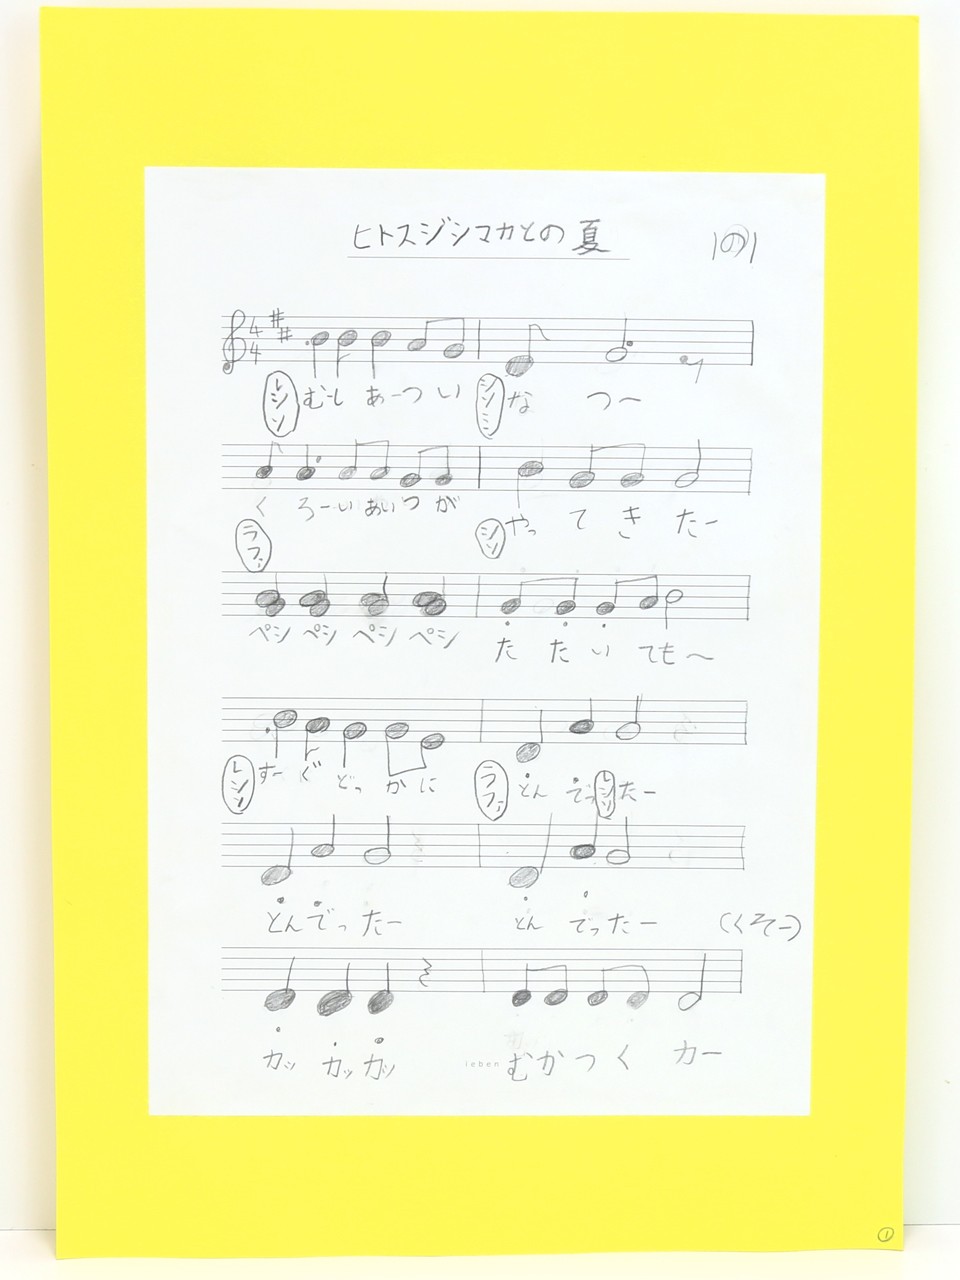 ヒトスジシマカとの夏 1の1
4
4
レシソ むーし あーつ い シソミ な つー
く ろーい あいつ が シソ やっ て き たー
ラファ
ペシ ペシ ペシ ペシ た た い ても〜
レシソ すー ぐ どっ か に ラファ とん でっ レシソ たー
とん でっ たー とん でっ たー (くそー)
カッ カッ カッ むかつく カー
ieben
①